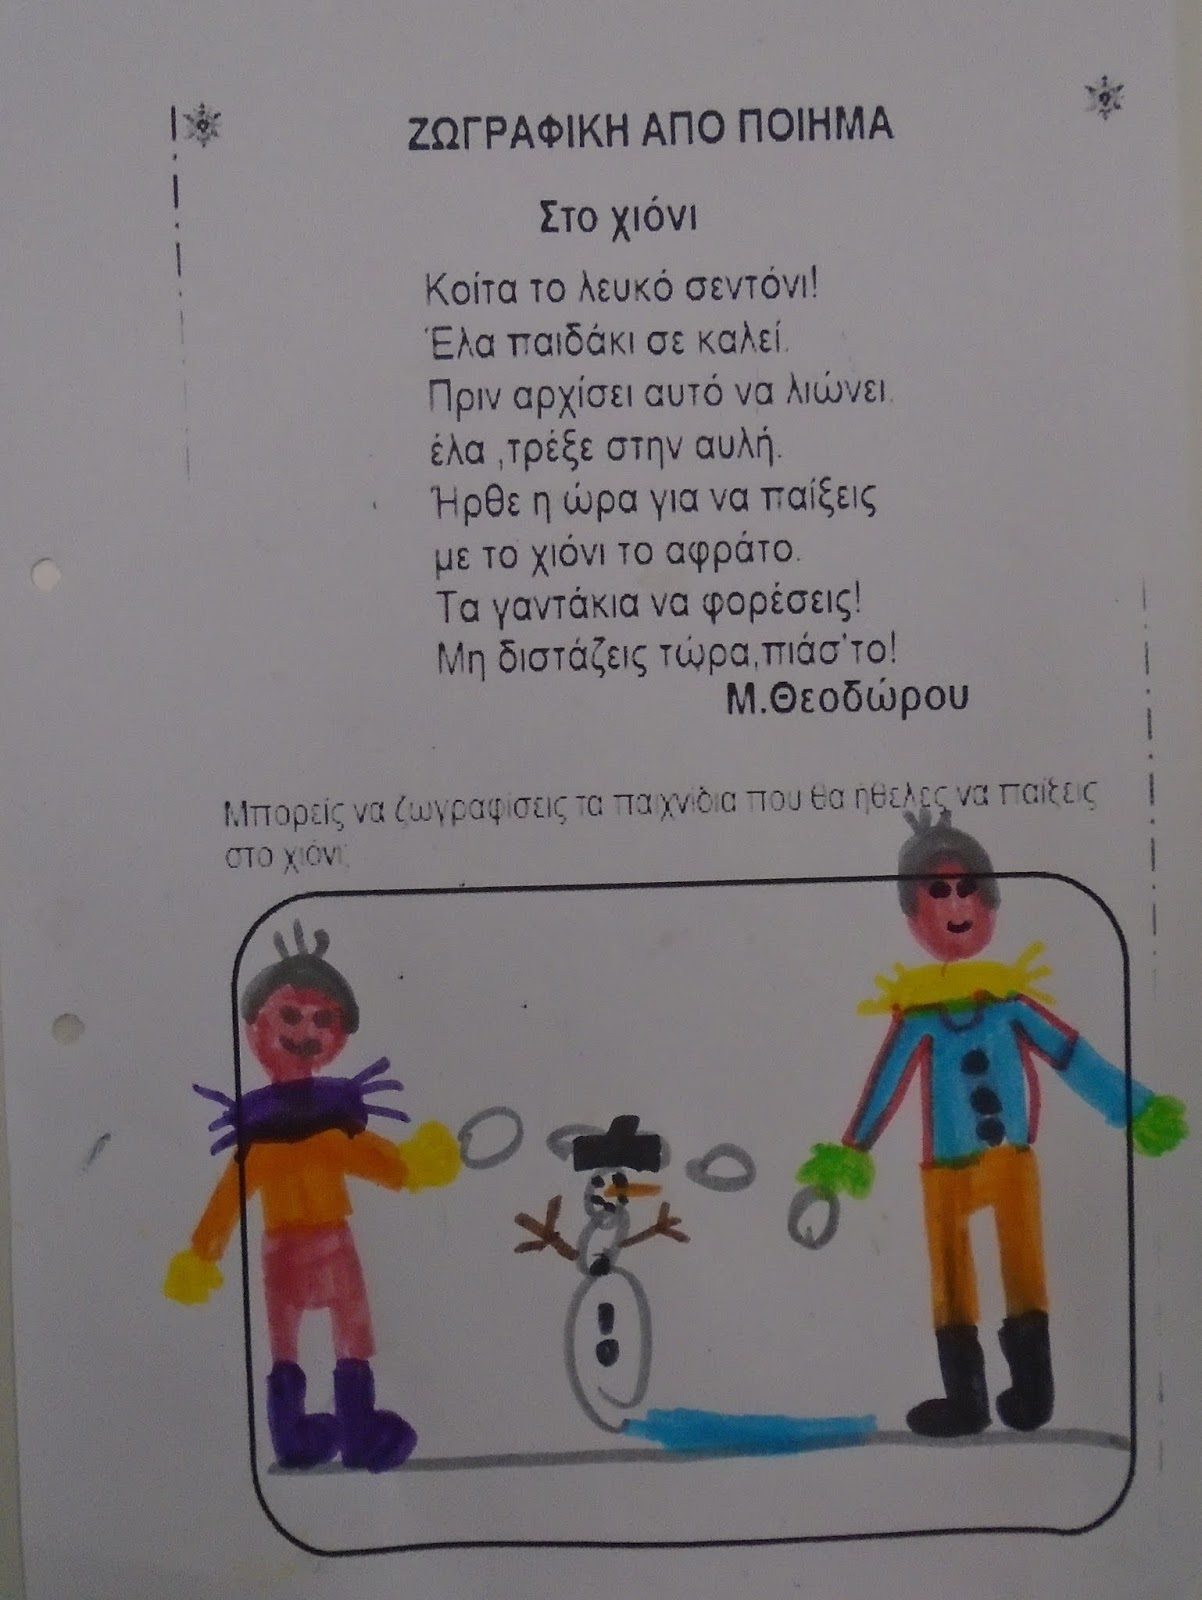 ΖΩΓΡΑΦΙΚΗ ΑΠΟ ΠΟΙΗΜΑ
Στο χιόνι
Κοίτα το λευκό σεντόνι!
Έλα παιδάκι σε καλεί.
Πριν αρχίσει αυτό να λιώνει.
έλα ,τρέξε στην αυλή.
Ήρθε η ώρα για να παίξεις
με το χιόνι το αφράτο.
Τα γαντάκια να φορέσεις!
Μη διστάζεις τώρα,πιάσ'το!
Μ.Θεοδώρου
Μπορείς να ζωγραφίσεις τα παιχνίδια που θα ήθελες να παίξεις
στο χιόνι;